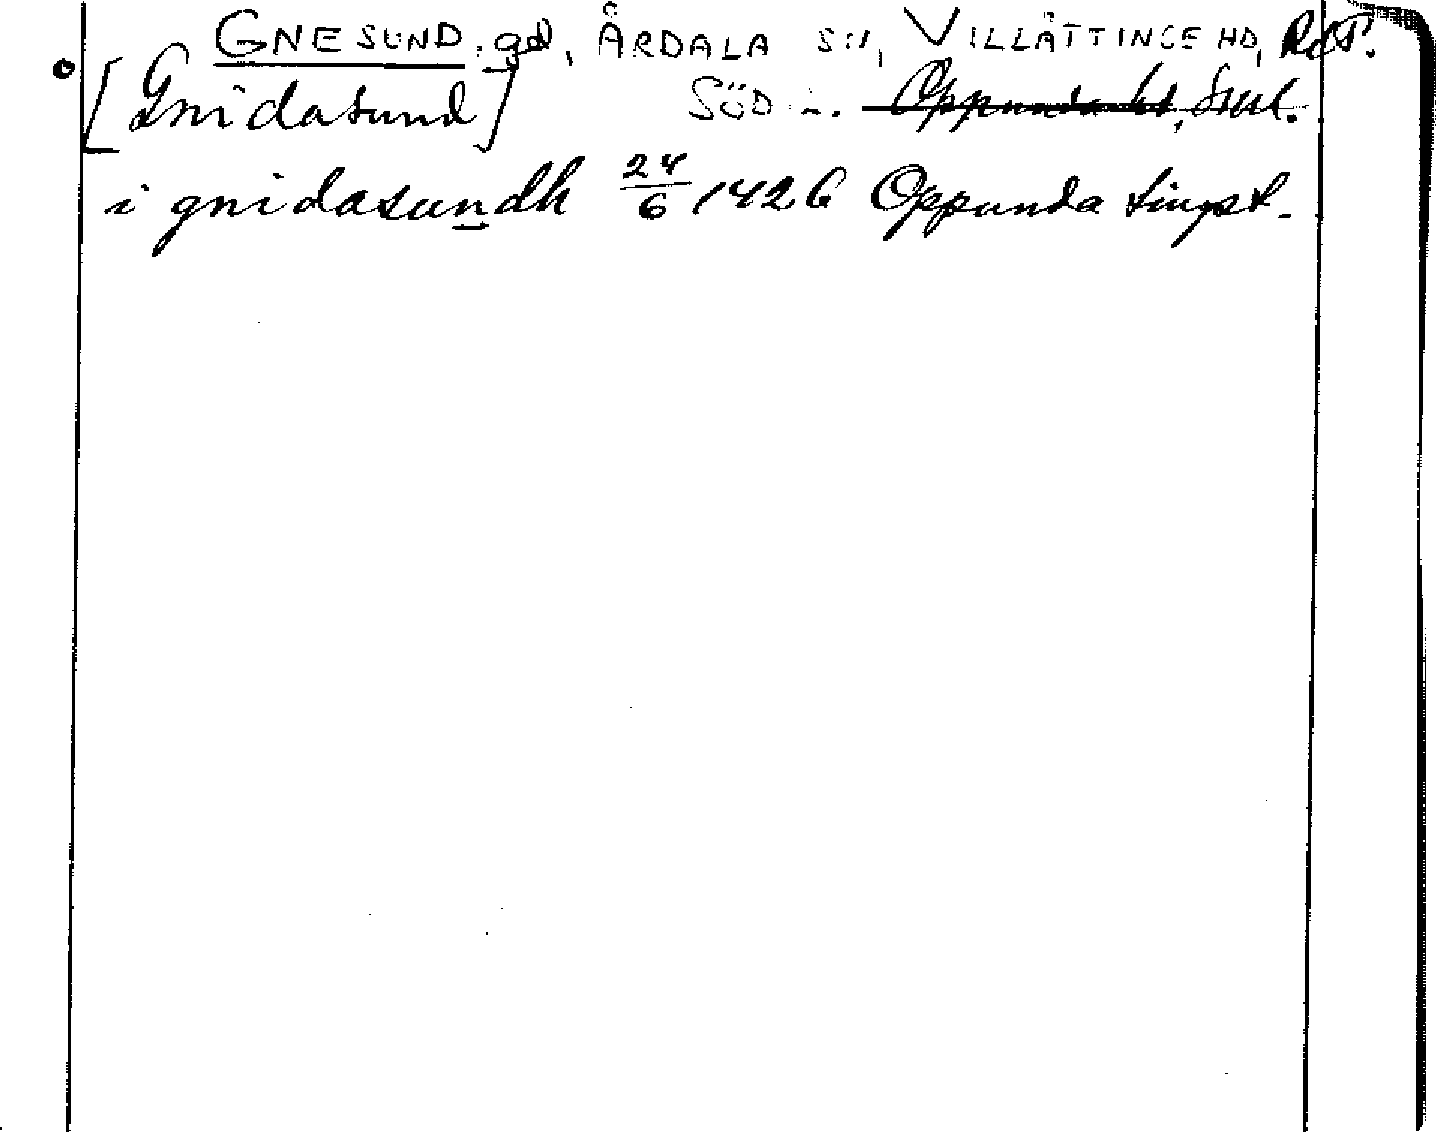 GNESUND. gd, ÅRDALA SN, VILLÅTTINGE HD,
[Gnidasund] SÖD ~~Oppunda hd, Srml.~~
i gnidasundh 24/6 1426 Oppunda tingst.